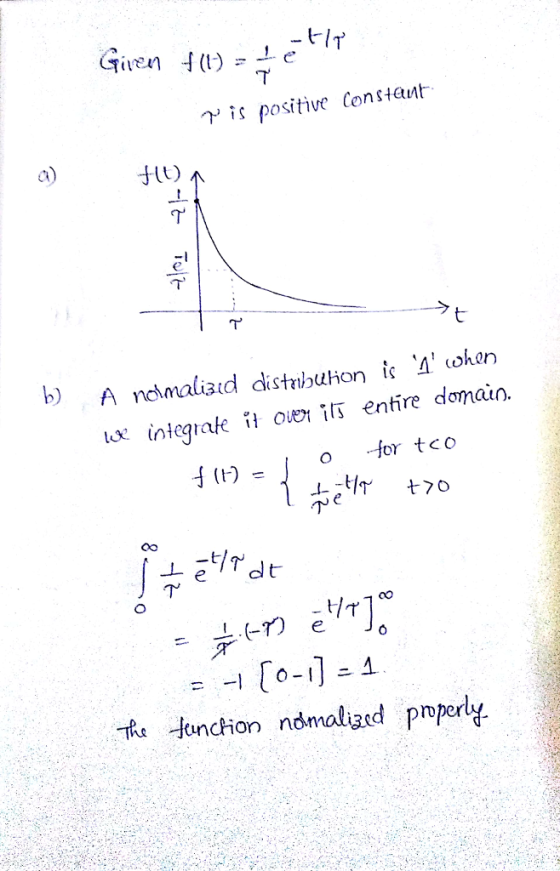 Given f(t) = 1/τ e^(-t/τ)
τ is positive constant.
a)
f(t)
1/τ
e^-1/τ
τ
t
b) A normalized distribution is '1' when
we integrate it over its entire domain.
f(t) = { 0 for t<0
1/τ e^(-t/τ) t>0
∫₀^∞ 1/τ e^(-t/τ) dt
= 1/τ·(-τ) e^(-t/τ)]₀^∞
= -1 [0-1] = 1.
The function normalized properly.